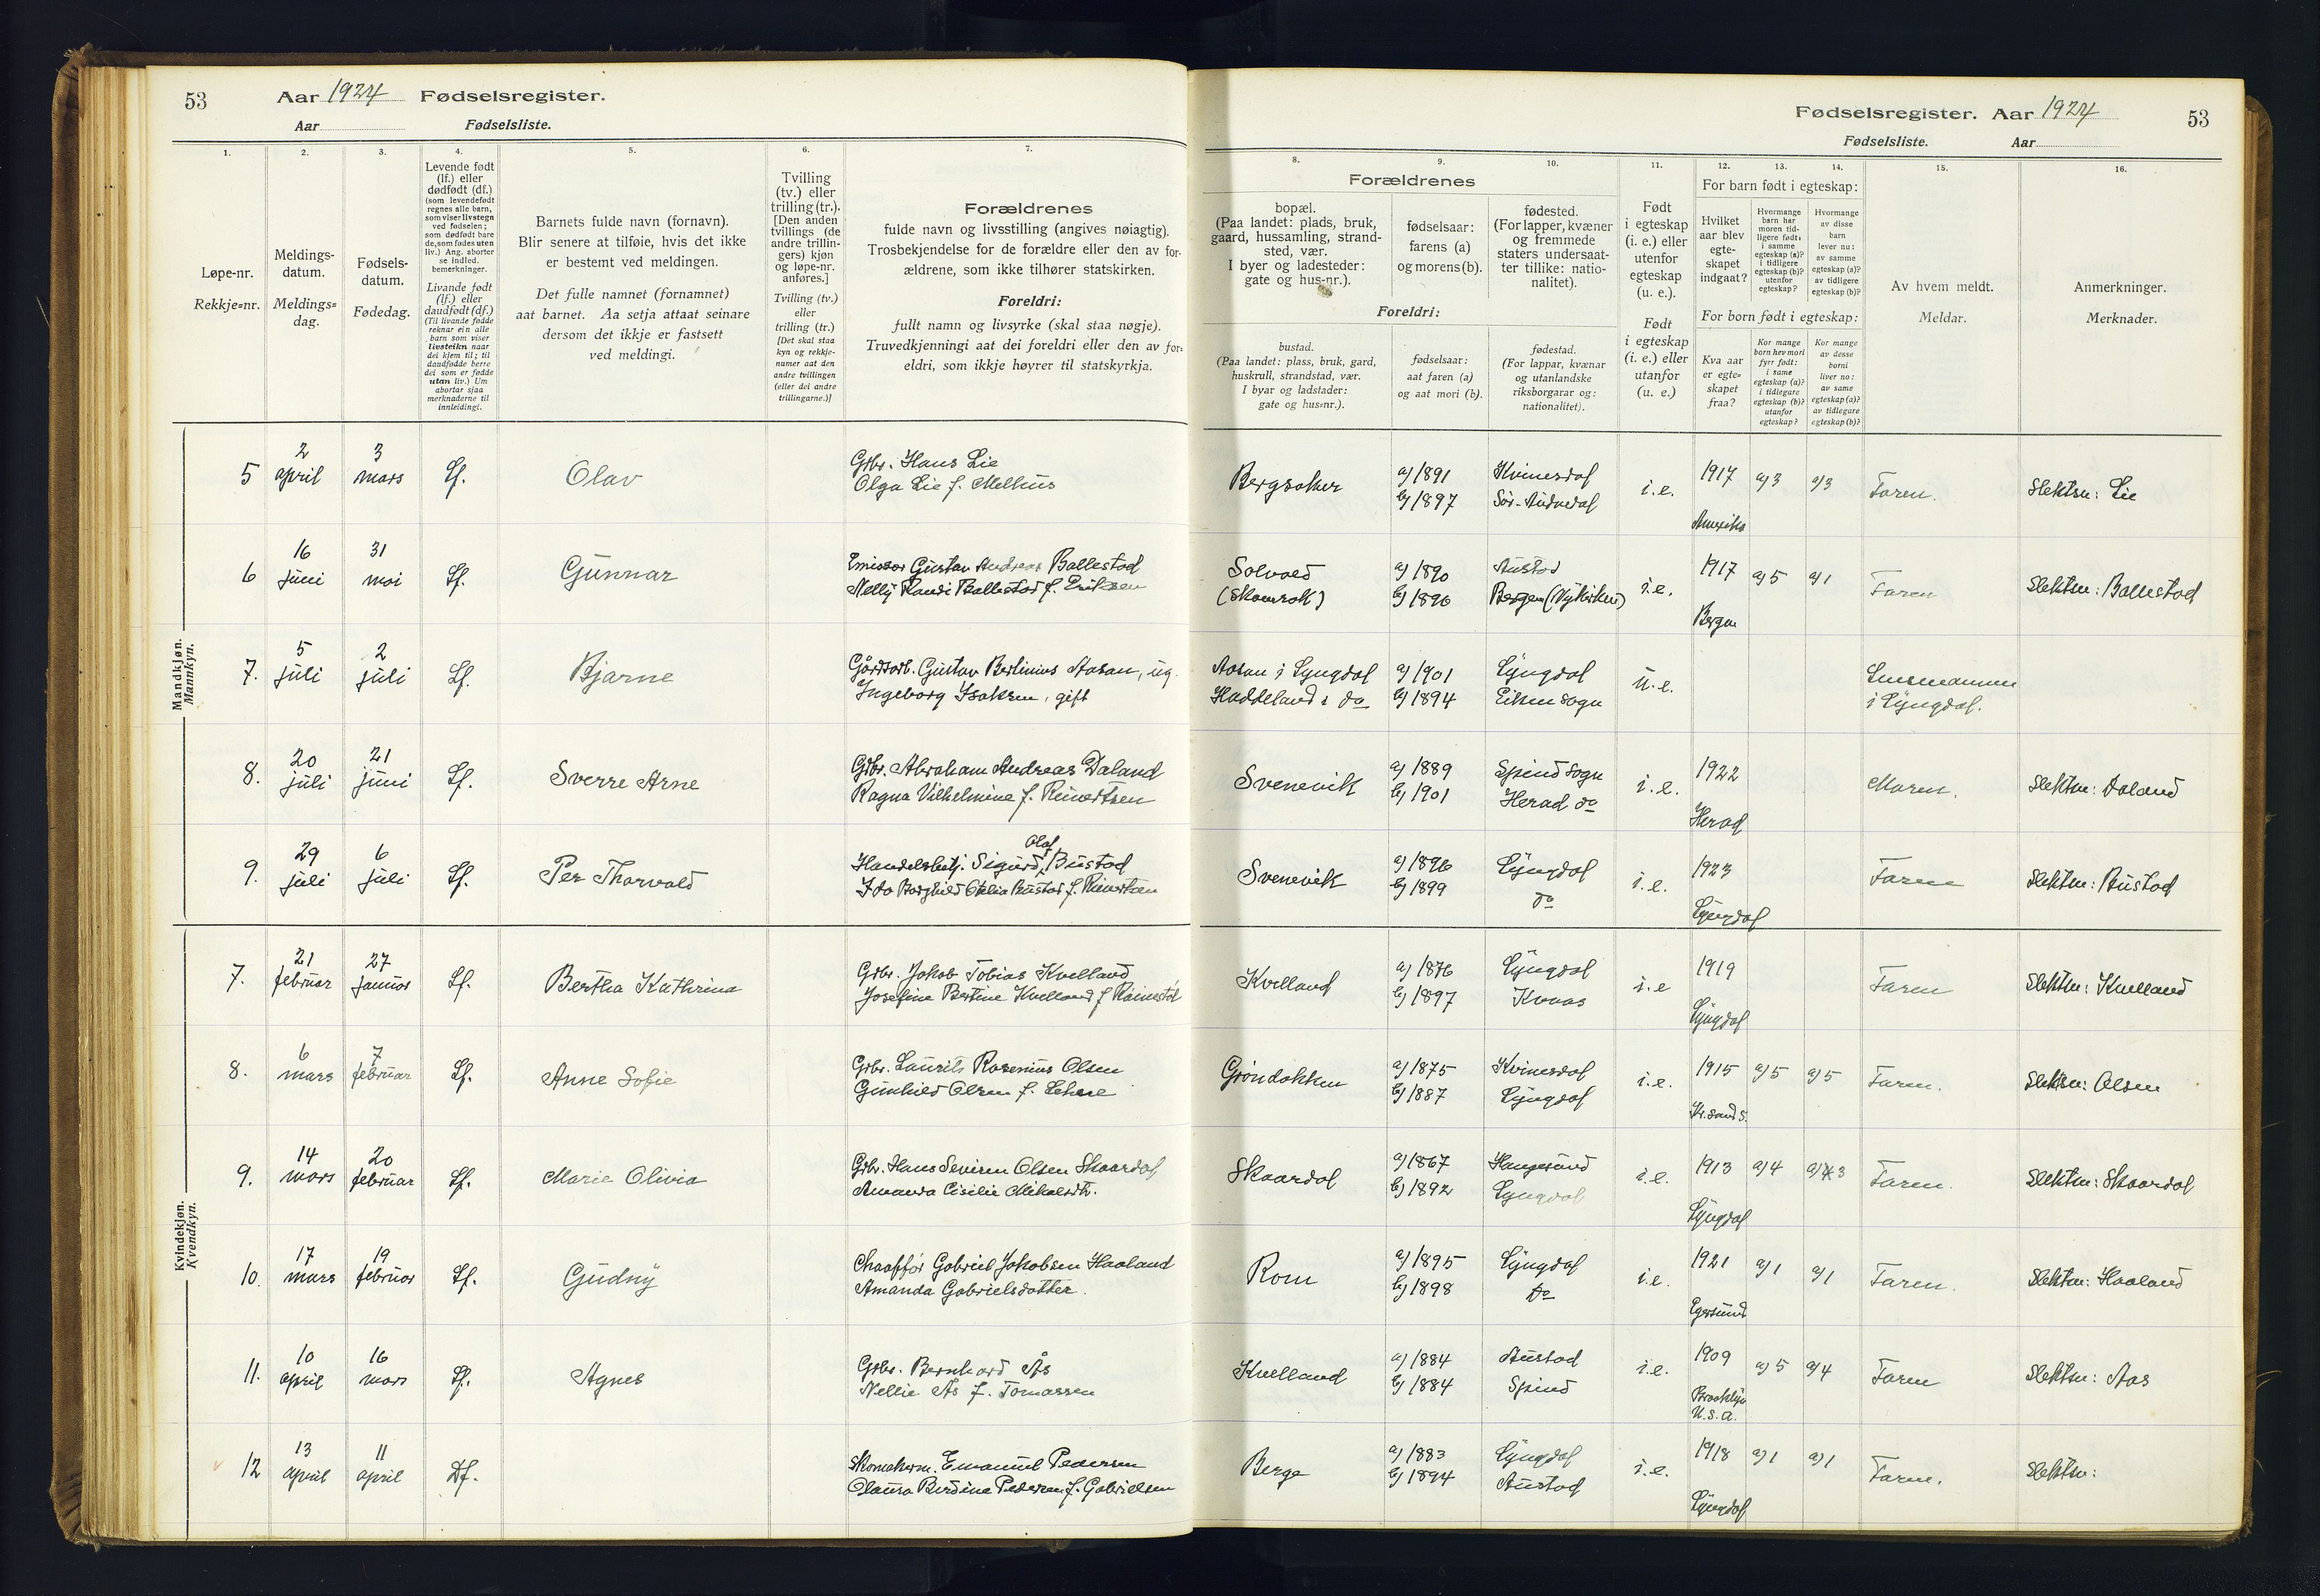 53 Aar 1924 Fødselsregister.
Aar Fødselsliste.
1. 2. 3. 4. 5. 6. 7.
Løpe-nr.
Rekkje=nr.
Meldings-
datum.
Meldings=
dag.
Fødsels-
datum.
Fødedag.
Levende født
(lf.) eller
dødfødt (df.)
(som levendefødt
regnes alle barn,
som viser livstegn
ved fødselen;
som dødfødt bare
de, som fødes uten
liv.) Ang. aborter
se indled.
bemerkninger.
Livande født
(lf.) eller
daudfødt (df.)
(Til livande fødde
reknar ein alle
barn som viser
livsteikn naar
dei kjem til; til
daudfødde berre
dei som er fødde
utan liv.) Um
abortar sjaa
merknaderne til
innleidingi.
Barnets fulde navn (fornavn).
Blir senere at tilføie, hvis det ikke
er bestemt ved meldingen.
Det fulle namnet (fornamnet)
aat barnet. Aa setja attaat seinare
dersom det ikkje er fastsett
ved meldingi.
Tvilling
(tv.) eller
trilling (tr.).
[Den anden
tvillings (de
andre trillin-
gers) kjøn
og løpe-nr.
anføres.]
Tvilling (tv.)
eller
trilling (tr.)
[Det skal staa
kyn og rekkje-
numer aat den
andre tvillingen
(eller dei andre
trillingarne.)]
Forældrenes
fulde navn og livsstilling (angives nøiagtig).
Trosbekjendelse for de forældre eller den av for-
ældrene, som ikke tilhører statskirken.
Foreldri:
fullt namn og livsyrke (skal staa nøgje).
Truvedkjenningi aat dei foreldri eller den av for=
eldri, som ikkje høyrer til statskyrkja.
Mandkjøn.
Mannkyn.
5 2 april 3 mars Lf. Olav
Gbr. Hans Lie
Olga Lie f. Melhus
6 16 juni 31 mai Lf. Gunnar
Emissær Gustav Andreas Ballestad
Nelly Randi Ballestad f. Eriksen
7. 5 juli 2 juli Lf. Bjarne
Gårdsarb. Gustav Bertinius Aasan, ug.
Ingeborg Isaksen, gift
8. 20 juli 21 juni Lf. Sverre Arne
Gbr. Abraham Andreas Daland
Ragna Vilhelmine f. Reinertsen
9. 29 juli 6 juli Lf. Per Thorvald
Olaf
Handelsbetj. Sigurd Bustad
Ida Borghild Bustad f. Reinertsen
Kvindekjøn.
Kvendkyn.
7. 21 februar 27 januar Lf. Bertha Kathrine
Gbr. Jakob Tobias Kvelland
Josefine Bertine Kvelland f.
8. 6 mars 7 februar Lf. Anne Sofie
Gbr. Laurits Rosenius Olsen
Gunhild Olsen f.
9. 14 mars 20 februar Lf. Marie Olivia
Gbr. Hans Severin Olsen Skaardal
Amanda Cisilie Mikalsdtr.
10. 17 mars 19 februar Lf. Gudny
Chaaffør Gabriel Jakobsen Haaland
Amanda Gabrielsdatter.
11. 10 april 16 mars Lf. Agnes
Gbr. Bernhard Ås
Nellie Ås f. Tomassen
12 13 april 11 april Df.
Skomakerm. Emanuel Pedersen
Pedersen f. Gabrielsen
Fødselsregister. Aar 1924 53
Fødselsliste. Aar
8. 9. 10. 11. 12. 13. 14. 15. 16.
Forældrenes
bopæl.
(Paa landet: plads, bruk,
gaard, hussamling, strand-
sted, vær.
I byer og ladesteder:
gate og hus-nr.).
fødselsaar:
farens (a)
og morens (b).
fødested.
(For lapper, kvæner
og fremmede
staters undersaat-
ter tillike: natio-
nalitet).
Foreldri:
bustad.
(Paa landet: plass, bruk, gard,
huskrull, strandstad, vær.
I byar og ladstader:
gate og hus=nr.).
fødselsaar:
aat faren (a)
og aat mori (b).
fødestad.
(For lappar, kvænar
og utanlandske
riksborgarar og:
nationalitet).
Født
i egteskap
(i. e.) eller
utenfor
egteskap
(u. e.).
Født
i egteskap
(i. e.) eller
utanfor
(u. e.)
For barn født i egteskap:
Hvilket
aar blev
egte-
skapet
indgaat?
Hvormange
barn har
moren tid-
ligere født:
i samme
egteskap (a)?
i tidligere
egteskap (b)?
utenfor
egteskap?
Hvormange
av disse
barn
lever nu:
av samme
egteskap (a)?
av tidligere
egteskap (b)?
For born født i egteskap:
Kva aar
er egte=
skapet
fraa?
Kor mange
born hev mori
fyrr født:
i same
egteskap (a)?
i tidlegare
egteskap (b)?
utanfor
egteskap?
Kor mange
av desse
borni
liver no:
av same
egteskap (a)?
av tidlegare
egteskap (b)?
Av hvem meldt.
Meldar.
Anmerkninger.
Merknader.
Bergsaker a) 1891 Kvinesdal i.e. 1917 a) 3 a) 3 Faren. Slektsn: Lie
b) 1897 Sør-Audnedal
Amerika
Solvold a) 1890 Austad i.e. 1917 a) 5 a) 1 Faren Slektsn: Ballestad
b) 1896 Bergen (Nykirken)
Bergen
Aasan i Lyngdal a) 1901 Lyngdal u.e. Lensmannen
Haddeland i do b) 1894 Eiken sogn i Lyngdal.
Svenevik a) 1889 Spind sogn i.e. 1922 Moren. Slektsn: Daland
b) 1901 Herad do
Herad
Svenevik a) 1896 Lyngdal i.e. 1923 Faren Slektsn: Bustad
b) 1899 do
Lyngdal
Kvelland a) 1876 Lyngdal i.e 1919 Faren Slektsn: Kvelland
b) 1897 Kvaas
Lyngdal
Grøndokken a) 1875 Kvinesdal i.e. 1915 a) 5 a) 5 Faren. Slektsn: Olsen
b) 1887 Lyngdal
Kr.sand S.
Skaardal a) 1867 Haugesund i.e. 1913 a) 4 a) 3 Faren. Slektsn: Skaardal
b) 1892 Lyngdal
Lyngdal
Rom a) 1895 Lyngdal i.e. 1921 a) 1 a) 1 Faren. Slektsn: Haaland
b) 1898 Do
Egersund
Kvelland a) 1884 Austad i.e. 1909 a) 5 a) 4 Faren Slektsn: Aas
b) 1884 Spind
Brooklyn
U.S.A.
Berge a) 1883 Lyngdal i.e. 1918 a) 1 a) 1 Faren. Slektsn:
b) 1894 Austad
Lyngdal